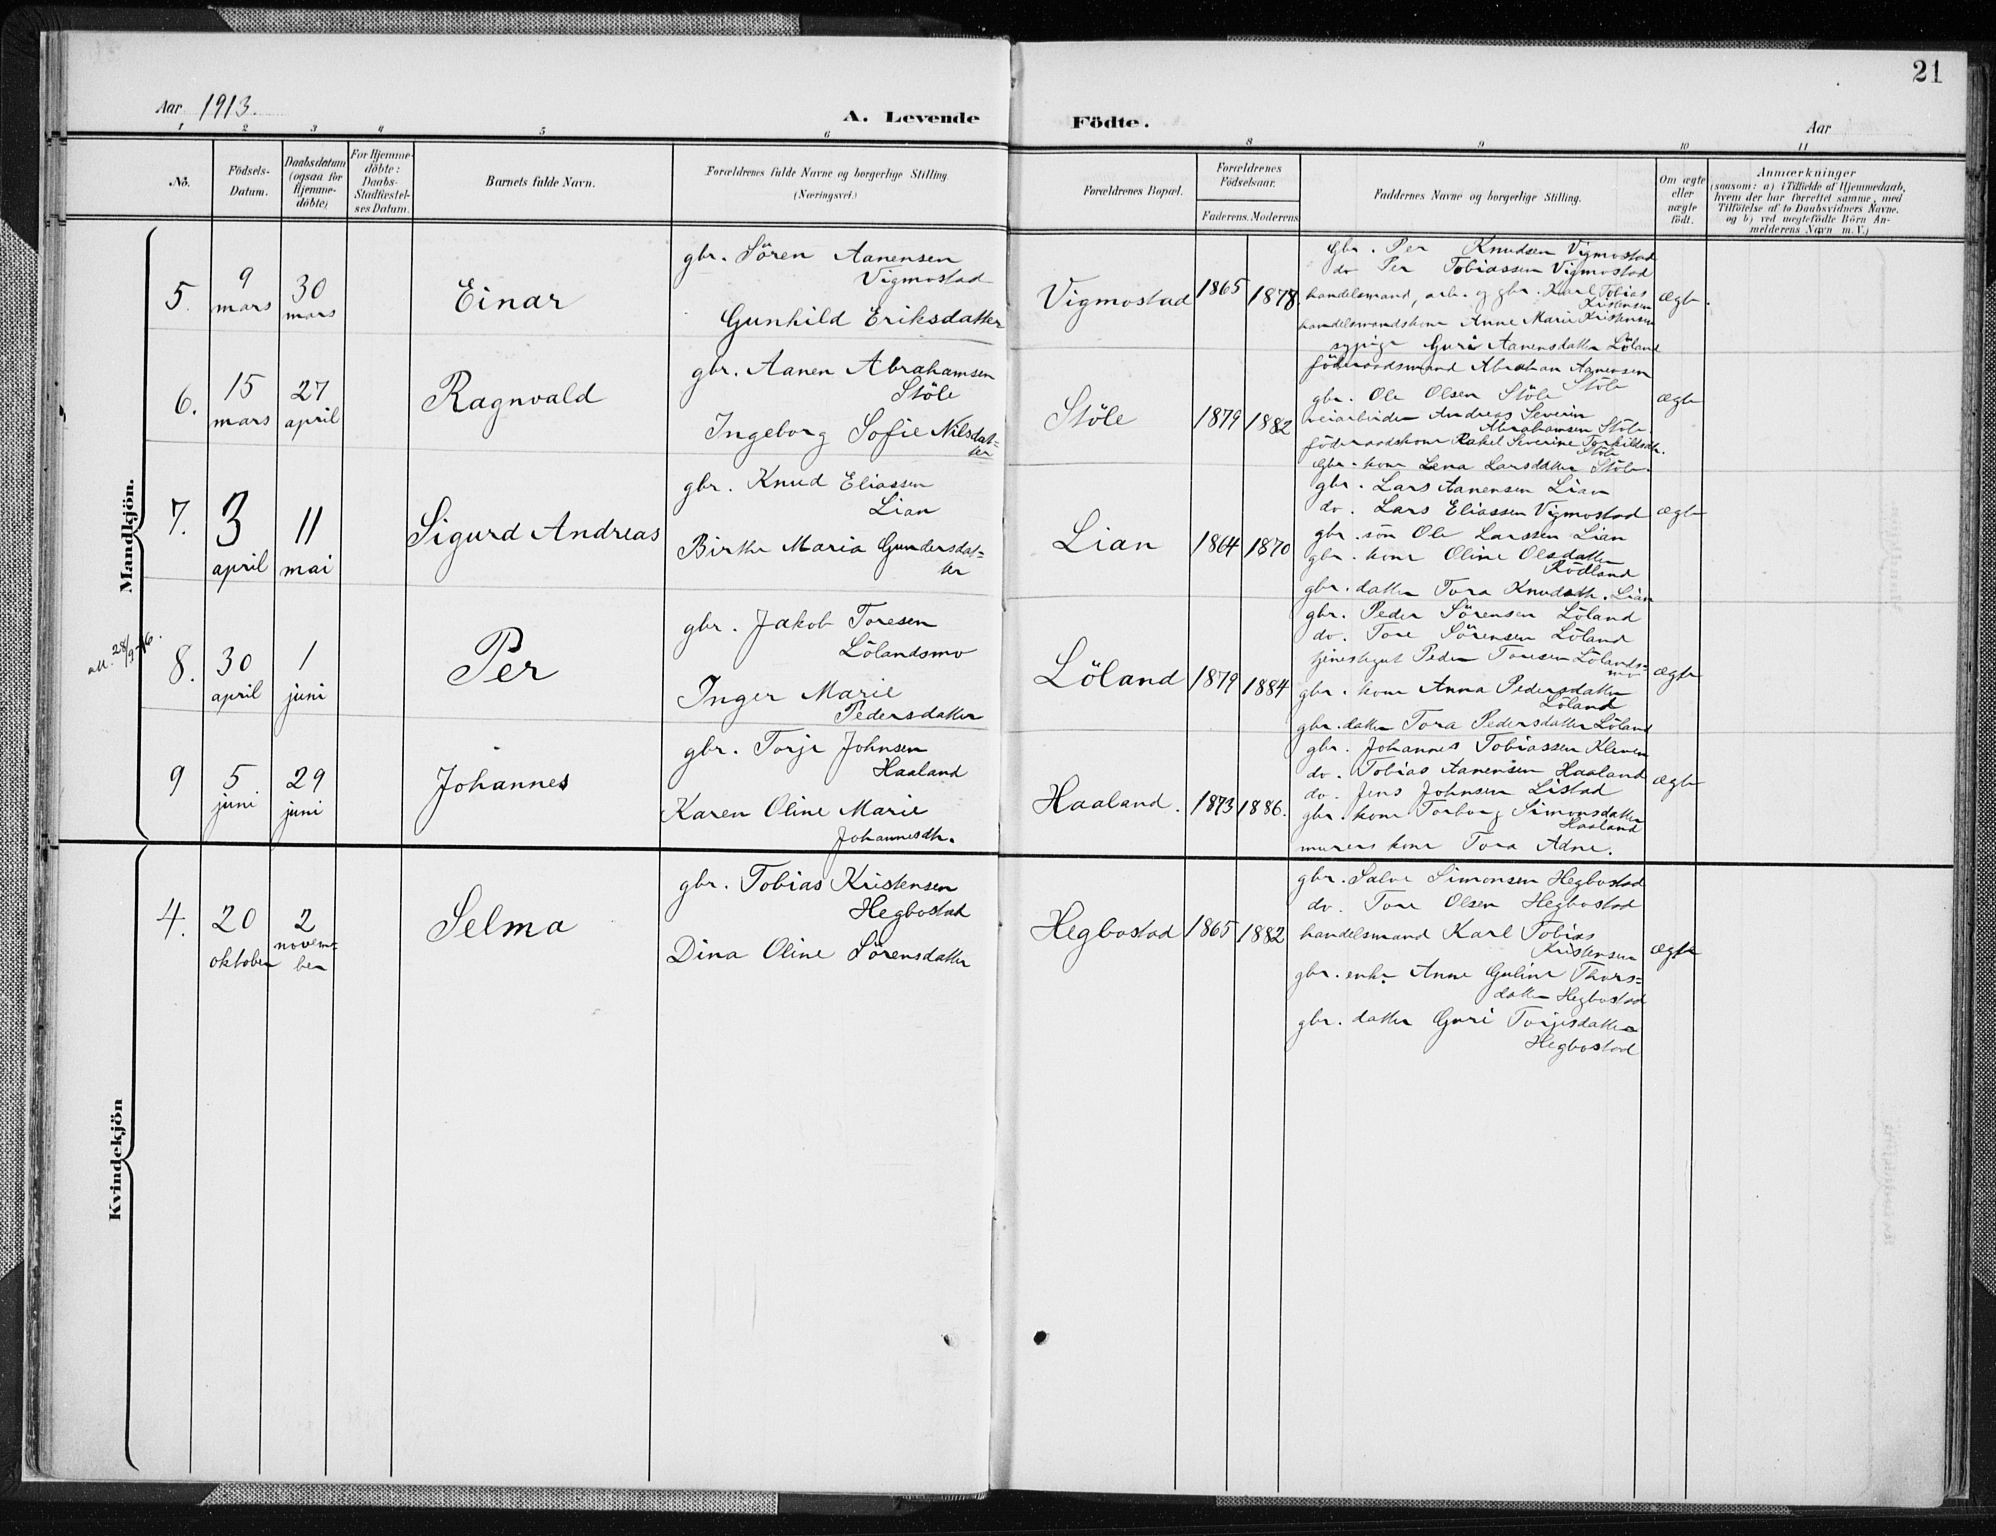 21
Aar 1913.
A. Levende Födte.
Aar
1 2 3 4 5 6 8 9 10 11
No.
Födsels-
Datum.
Daabsdatum
(ogsaa for
Hjemme-
döbte)
For Hjemme-
döbte:
Daabs-
Stadfæstel-
ses Datum.
Barnets fulde Navn.
Forældrenes fulde Navne og borgerlige Stilling
(Næringsvei.)
Forældrenes Bopæl.
Forældrenes
Födselsaar.
Faderens. Moderens
Faddernes Navne og borgerlige Stilling.
Om ægte
eller
uægte
født.
Anmærkninger
(saasom: a) i Tilfælde af Hjemmedaab,
hvem der har forrettet samme, med
Tilföielse af to Daabsvidners Navne.
og b) ved uegtefödte Börn An-
melderens Navn m. V.)
Mandkjön.
5.
9
mars
30
mars
Einar
gbr. Sören Aanensen
Vigmostad
Gunhild Eriksdatter
Vigmostad
1865
1878.
gbr. Per Knudsen Vigmostad
do Per Tobiassen Vigmostad
handelsmand, arb. og gbr. Karl Tobias
Kristensen
handelsmandskone Anne Marie Kristensen
sypige Guri Aanensdatter Löland
ægte.
6.
15
mars
27
april
Ragnvald
gbr. Aanen Abrahamsen
Stöle
Ingeborg Sofie Nilsdat-
ter
Stöle
1879
1882
föderaadsmand Abraham Aanensen
Stöle
gbr. Ole Olsen Stöle
veiarbeider Andreas Severin
Abrahamsen Stöle.
föderaadskone Rakel Severine Torkildsdtr.
Stöle
gbr. kone Lena Larsdatter Stöle.
ægte
7.
3
april
11
mai
Sigurd Andreas
gbr. Knud Eliassen
Lian
Birthe Maria Gundersdat-
ter
Lian
1864
1870
gbr. Lars Aanensen Lian
do. Lars Eliassen Vigmostad
gbr. sön Ole Larssen Lian
gbr. kone Oline Olsdatter
Rödland
gbr. datter Tora Knudsdtr. Lian
ægte
att. 28/9-46.
8.
30
april
1
juni
Per
gbr. Jakob Toresen
Lölandsmo
Inger Marie
Pedersdatter
Löland
1879
1884
gbr. Peder Sörensen Löland
do. Tore Sörensen Löland
tjenestegut Peder Toresen Lölands-
mo
gbr. kone Anna Pedersdatter
Löland
gbr. datter Tora Pedersdatter Löland
ægte
9
5
juni
29
juni
Johannes
gbr. Torje Johnsen
Haaland
Karen Oline Marie
Johannesdtr.
Haaland.
1873
1886.
gbr. Johannes Tobiassen Kleven
do. Tobias Aanensen Haaland
do. Jens Johnsen Listad
gbr. kone Torborg Simonsdatter
Haaland
murers kone Tora Adne.
ægte
Kvindekjön
4.
20
oktober
2
novem-
ber
Selma
gbr. Tobias Kristensen
Hegbostad
Dina Oline Sörensdatter
Hegbostad
1865
1882
gbr. Salve Simonsen Hegbostad
do. Tore Olsen Hegbostad
handelsmand Karl Tobias
Kristensen
gbr. enke Anne Guline Thors-
datter Hegbostad
gbr. datter Guri Torjesdatter
Hegbostad
ægte